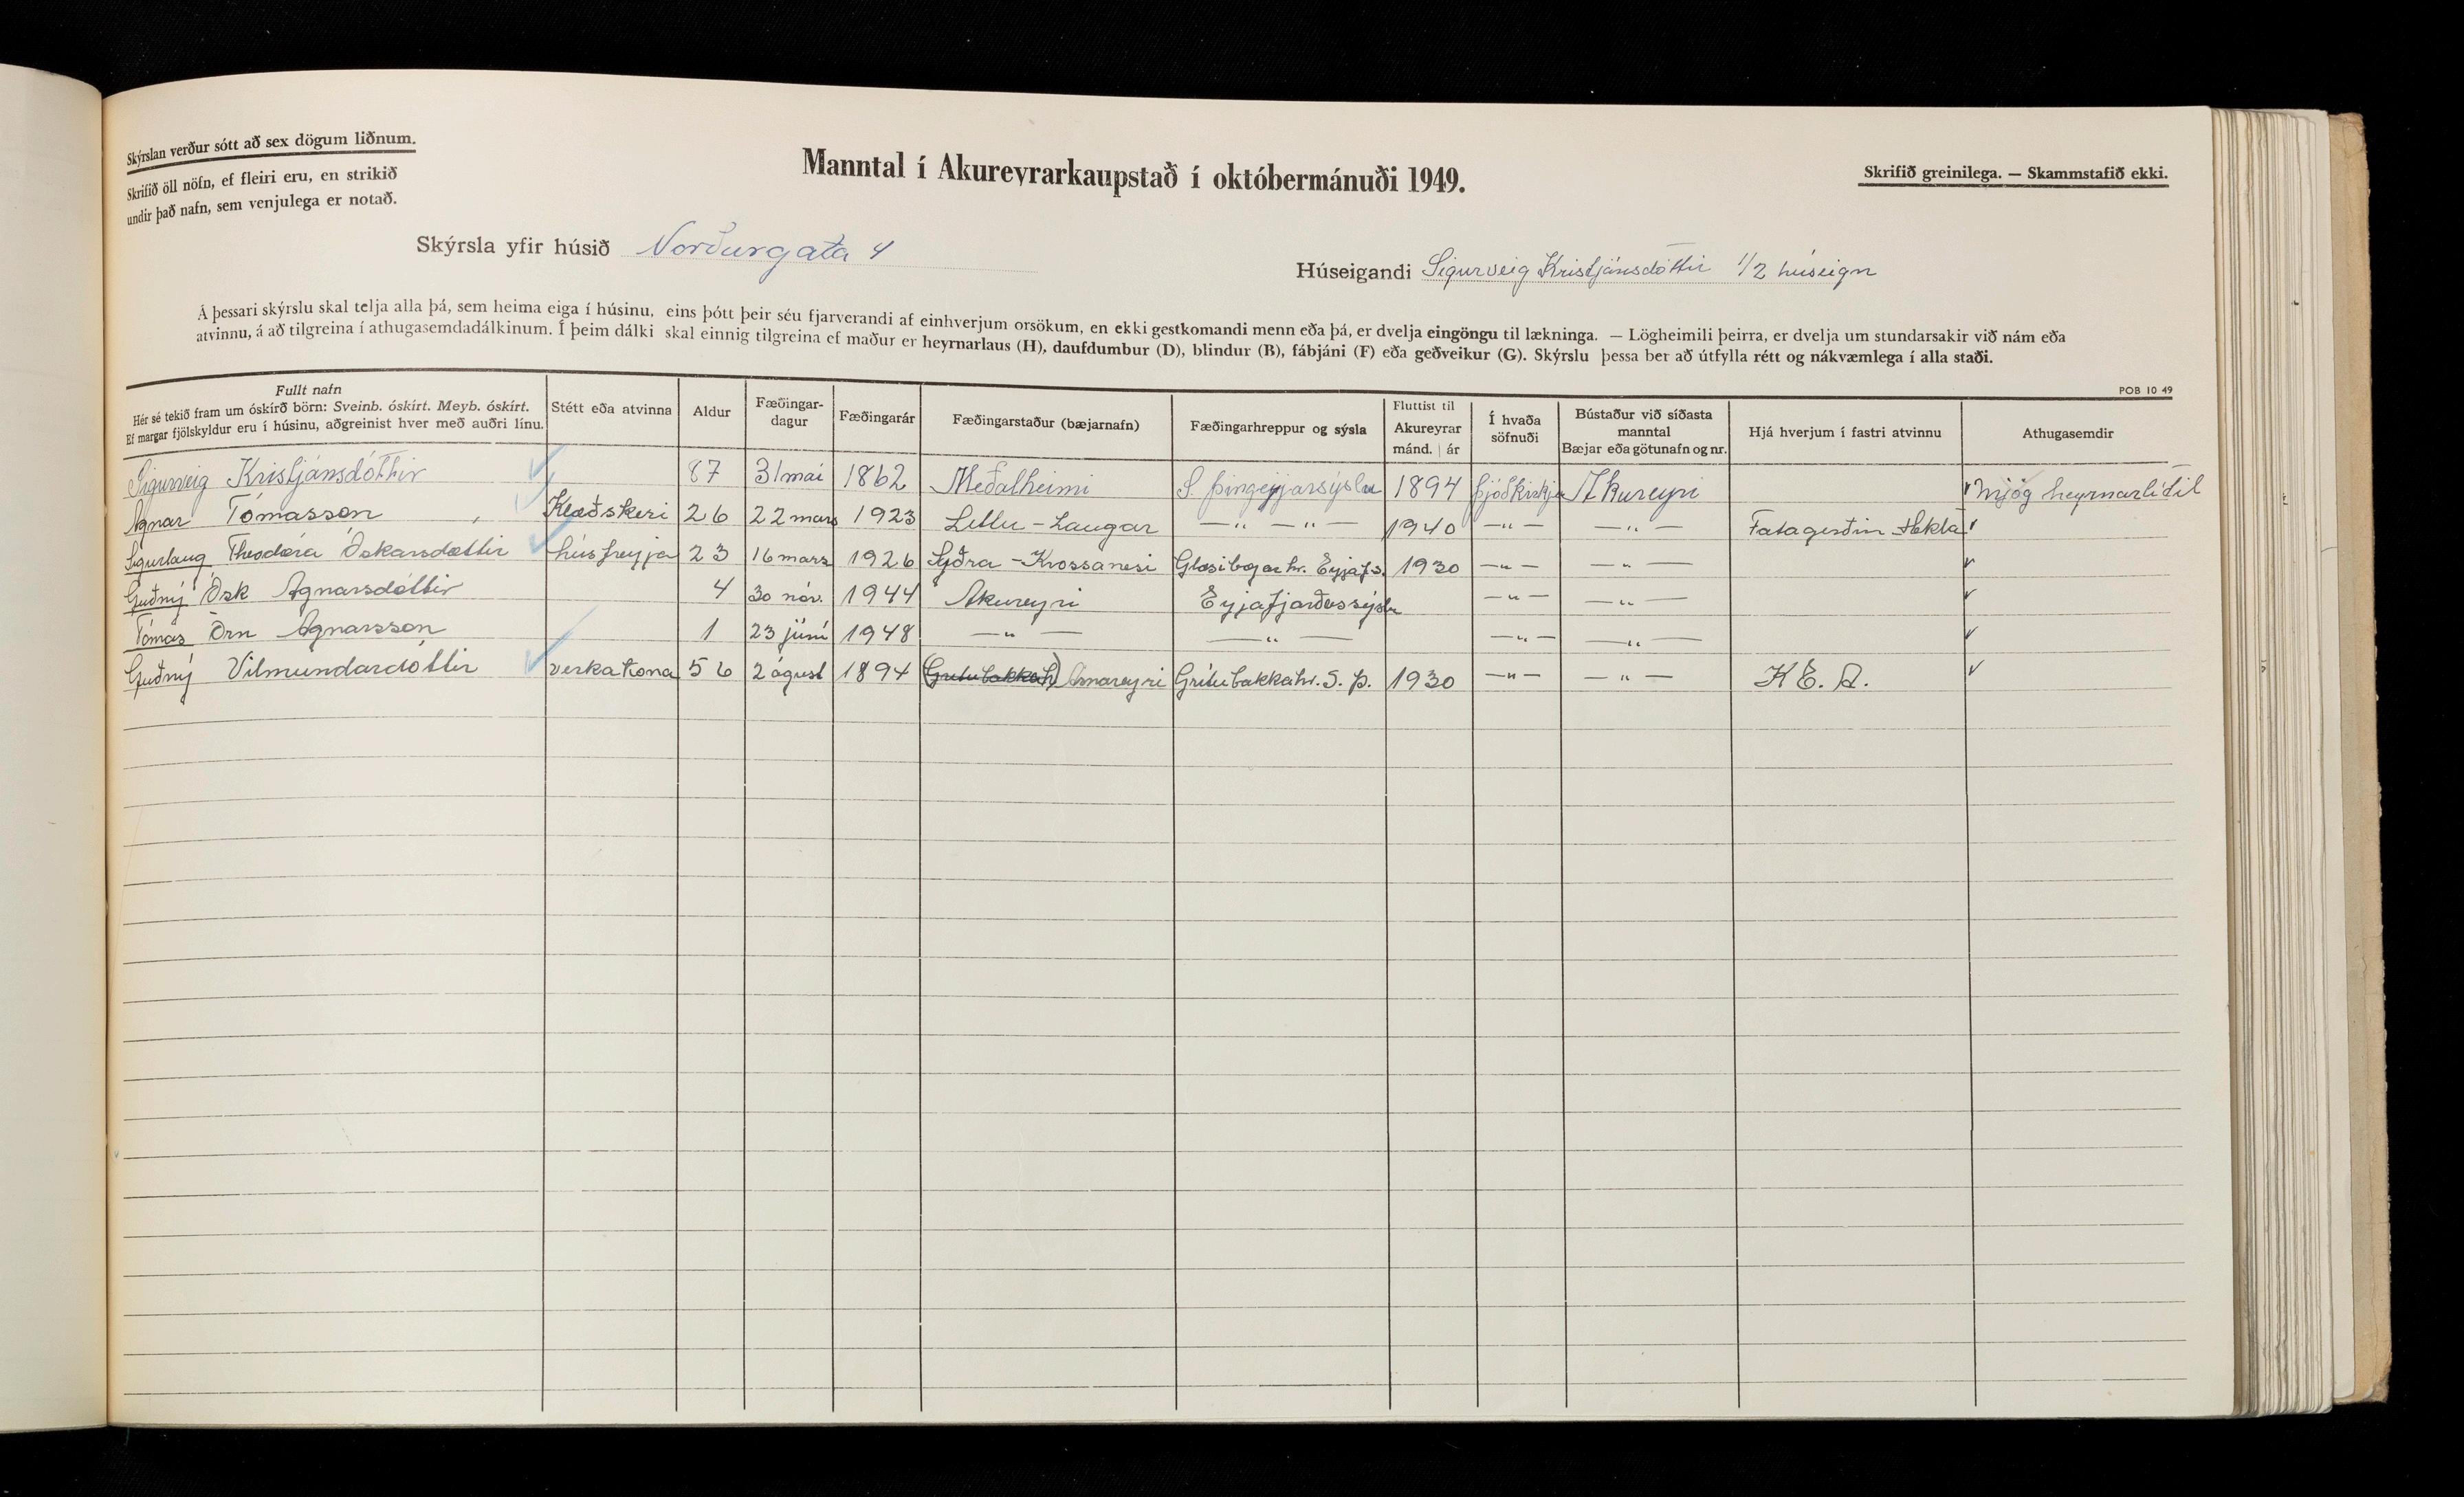 Skýrslan verður sótt að sex dögum liðnum.
Skrifið öll nöfn, ef fleiri eru, en strikið
undir það nafn, sem venjulega er notað.
Manntal í Akureyrarkaupstað í októbermánuði 1949.
Skrifið greinilega. — Skammstafið ekki.
Skýrsla yfir húsið Norðurgata 4
Húseigandi Sigurveig Kristjánsdóttir 1/2 húseign
Á þessari skýrslu skal telja alla þá, sem heima eiga í húsinu, eins þótt þeir séu fjarverandi af einhverjum orsökum, en ekki gestkomandi menn eða þá, er dvelja eingöngu til lækninga. — Lögheimili þeirra, er dvelja um stundarsakir við nám eða
atvinnu, á að tilgreina í athugasemdadálkinum. Í þeim dálki skal einnig tilgreina ef maður er heyrnarlaus (H), daufdumbur (D), blindur (B), fábjáni (F) eða geðveikur (G). Skýrslu þessa ber að útfylla rétt og nákvæmlega í alla staði.
POB 10 49
Fullt nafn
Hér sé tekið fram um óskírð börn: Sveinb. óskírt. Meyb. óskírt.
Ef margar fjölskyldur eru í húsinu, aðgreinist hver með auðri línu.
Stétt eða atvinna
Aldur
Fæðingar-
dagur
Fæðingarár
Fæðingarstaður (bæjarnafn)
Fæðingarhreppur og sýsla
Fluttist til
Akureyrar
mánd. | ár
Í hvaða
söfnuði
Bústaður við síðasta
manntal
Bæjar eða götunafn og nr.
Hjá hverjum í fastri atvinnu
Athugasemdir
Sigurveig Kristjánsdóttir 87 31 mai 1862 Meðalheimi S. Þingeyjarsýslu 1894 Þjóðkirkja Akureyri mjög heyrnarlítil
Agnar Tómasson Klæðskeri 26 22 mars 1923 Litlu-Laugar — " — " — 1940 — " — — " — Fatagerðin Hekla
Sigurlaug Theodóra Óskarsdóttir húsfreyja 23 16 mars 1926 Syðra-Krossanesi Glæsibæjarhr. Eyjafs. 1930 — " — — " —
Guðný Ósk Agnarsdóttir 4 30 nóv. 1944 Akureyri Eyjafjarðarsýslu — " — — " —
Tómas Örn Agnarsson 1 23 júní 1948 — " — — " — — " — — " —
Guðný Vilmundardóttir verkakona 56 2 ágúst 1894 (Grítubakkah) Grítubakkahr. S. Þ. 1930 — " — — " — K. E. A.